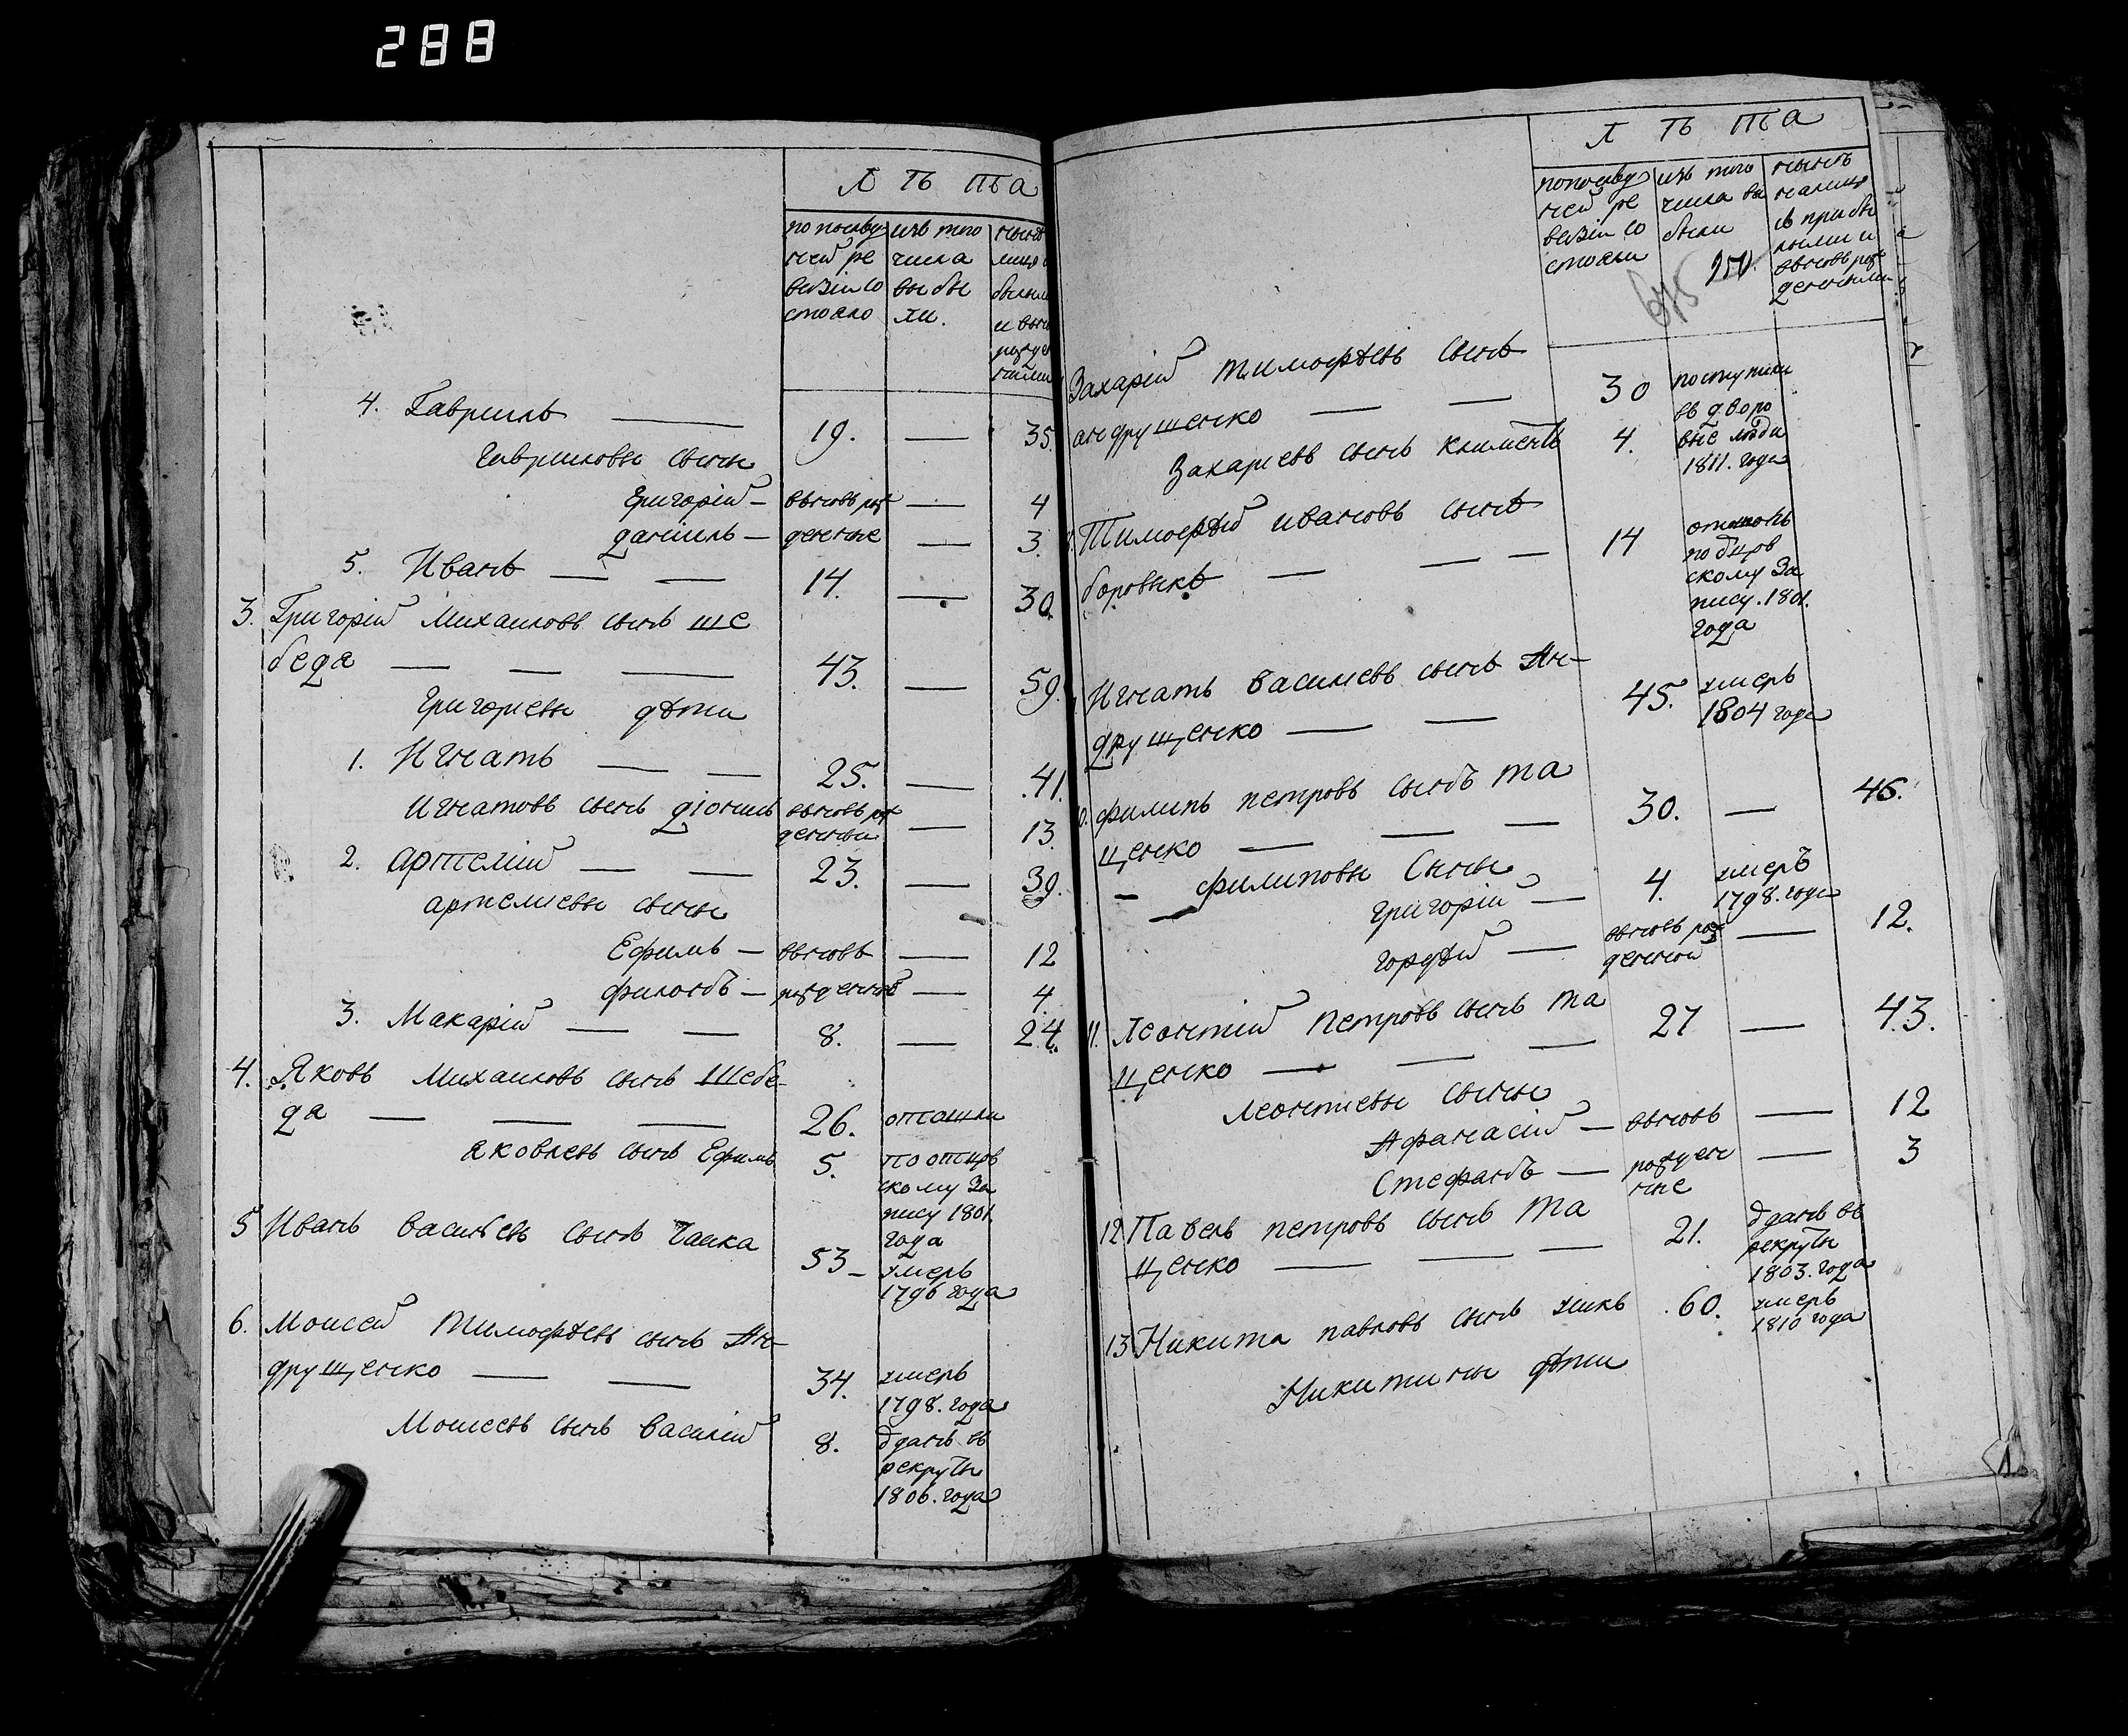 288
Л Ѣ ТА
по послѣд
ней ре
визіи со
стояло
изъ того
числа
выбы
ли.
4. Гаврилъ — 19. — 35.
Гавриловы сыны
Григорій — вновь рож — 4
Даніилъ — денные — 3.
5. Иванъ — — 14. — 30.
3. Григорій Михаиловъ сынъ ше
беда — — — 43. — 59.
Григориевы дѣти
1. Игнатъ — — 25. — 41.
Игнатовъ сынъ діонисъ вновь рож
денный — 13.
2. артемій — — 23. — 39.
артемиевы сыны
Ефимъ — вновь — 12
филонъ — рожденные — 4.
3. Макарій — — 8. — 24.
4. Яковъ Михаиловъ сынъ Шебе-
да — — — 26. отошли
Яковлевъ сынъ Ефимъ 5. по
скому За
пису 1801.
года
5 Иванъ Васильевъ сынъ Чайка 53 — умеръ
1796 года
6. Моисей Тимофѣевъ сынъ Ан-
друщенко — — 34. умеръ
1798. года
Моисеевъ сынъ Василій 8. ѿданъ въ
рекруты
1806. года
Л Ѣ ТА
по послѣд
ней ре
визіи со
стояли
изъ того
числа вы
были
нынѣ
налицо
съ прибы
лыми и
вновь рож
денными
Захарій Тимофѣевъ сынъ
андрущенко — — 30 поступили
въ дворо
вые люди
1811. года
Захариевъ сынъ Климентъ 4.
Тимофѣй ивановъ сынъ
боровыкъ — — — 14 отошолъ
по
скому За
пису. 1801.
года
Игнатъ Василиевъ сынъ Ан-
друщенко — — 45. умеръ
1804 года
филипъ петровъ сынъ та
щенко — — — 30. — 46.
филиповы Сыны
Григорій — 4. умеръ
1798. года
Гордѣй — вновь рож
денной — 12.
11. Леонтій Петровъ сынъ Та
щенко — — — 27 — 43.
Леонтиевы сыны
Афанасій — вновь — 12
Стефанъ — рожден
ные — 3
12 Павелъ петровъ сынъ Та
щенко — — — 21. ѿданъ въ
рекруты
1803. года
13 Никита павловъ сынъ 60. умеръ
1810 года
Никитины дѣти